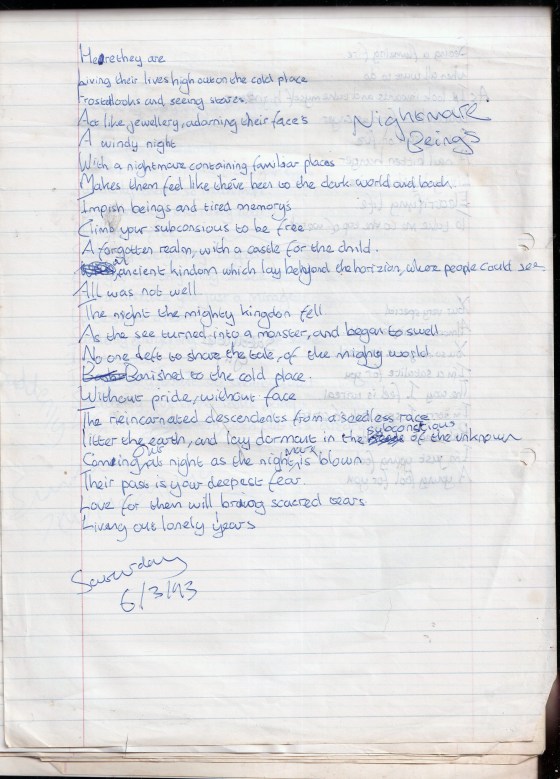 Here they are
Living their lives high out on the cold place
Frosdlooks and seeing stares
Act like jewellery, adorning their face's
Nightmare
Being's
A windy night
With a nightmare containing familiar places
Makes them feel like there been to the dark world and back.
Impish beings and tired memorys
Climb your subconsious to be free
A forgotten realm, with a castle for the child.
An ancient kindom which lay behyond the horizion, where people could see
All was not well
The night the mighty kingdon fell
As the see turned into a monster, and began to swell
No one left to share the tale, of the mighty world
Banished to the cold place.
Without pride, without face
The reincarnated descendents from a seedless race
litter the earth, and lay dormant in the subconstious of the unknown
Coming out at night as the night mare is blown
Their pass is your deepest fear.
Love for them will bring scacred tears
Living out lonely years
Saturday
6/3/93